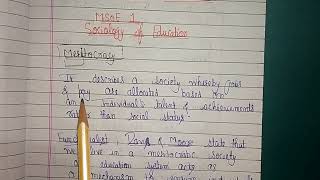 MSOE 1
Sociology of Education
Meritocracy
It describes a society whereby jobs
& pay are allocated based on
an individual's talent & achievements
rather than social status
Functionalist, Davis & Moore state that
we live in a meritocratic society
education system acts as